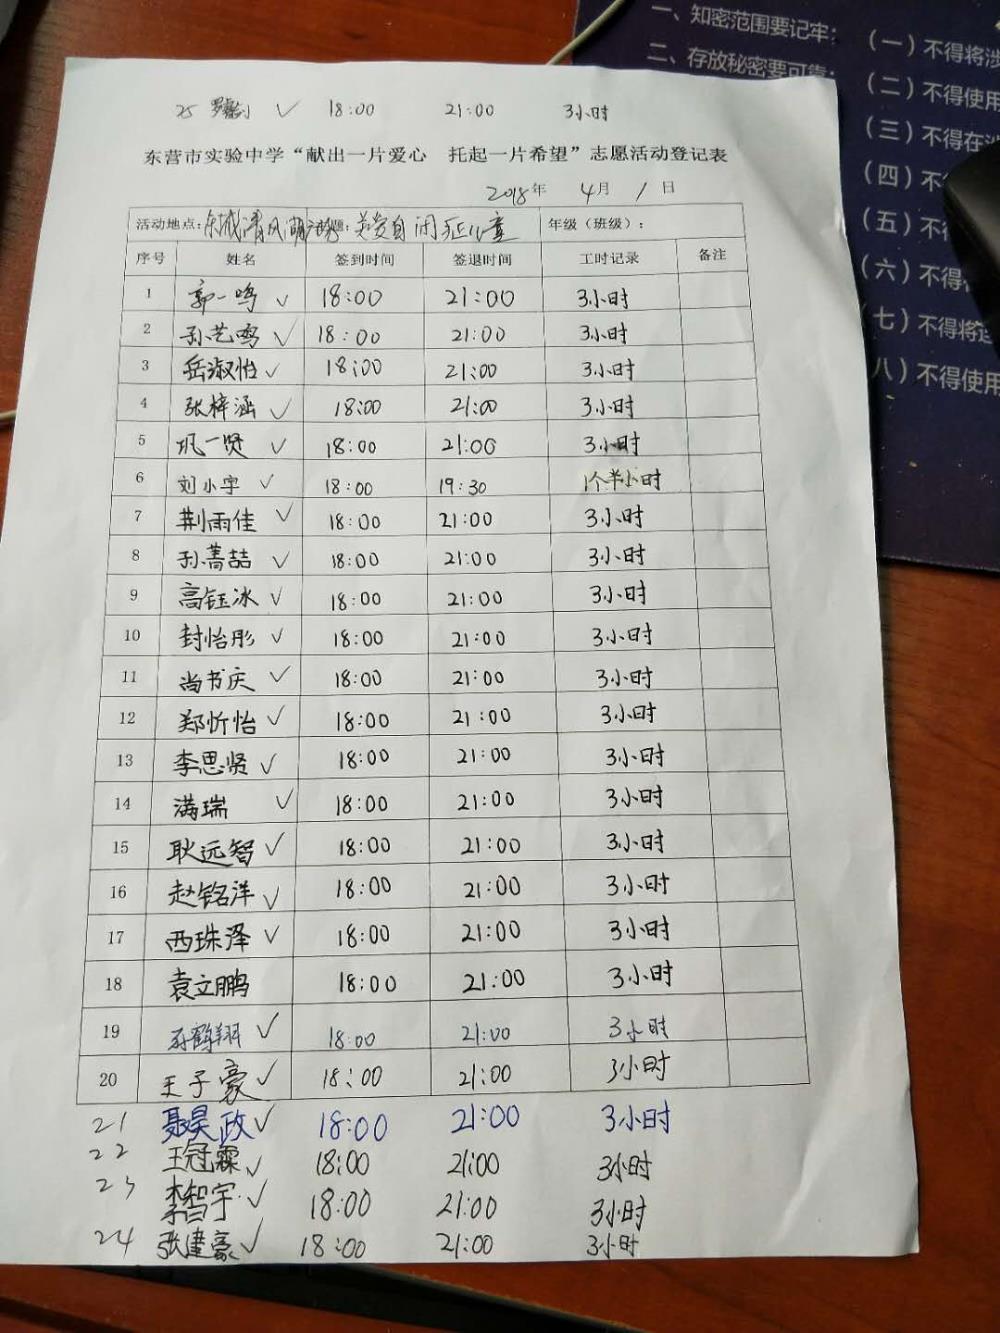 一、知密范围要记牢；
二、存放秘密要可靠；
（一）不得将涉
（二）不得使用
（三）不得在
（四）不
（五）不
（六）不得
七）不得将
八）不得使用
25 ✓ 18:00 21:00 3小时
东营市实验中学“献出一片爱心 托起一片希望”志愿活动登记表
2018年 4月 1日
活动地点：东城清风湖 题：关爱自闭症儿童 年级（班级）：
序号 姓名 签到时间 签退时间 工时记录 备注
1 郭一鸣 ✓ 18:00 21:00 3小时
2 孙艺鸣 ✓ 18:00 21:00 3小时
3 岳淑怡 ✓ 18:00 21:00 3小时
4 张梓涵 ✓ 18:00 21:00 3小时
5 巩一贤 ✓ 18:00 21:00 3小时
6 刘小宇 ✓ 18:00 19:30 1个半小时
7 荆雨佳 ✓ 18:00 21:00 3小时
8 孙菁喆 ✓ 18:00 21:00 3小时
9 高钰冰 ✓ 18:00 21:00 3小时
10 封怡彤 ✓ 18:00 21:00 3小时
11 尚书庆 ✓ 18:00 21:00 3小时
12 郑忻怡 ✓ 18:00 21:00 3小时
13 李思贤 ✓ 18:00 21:00 3小时
14 满瑞 ✓ 18:00 21:00 3小时
15 耿远智 ✓ 18:00 21:00 3小时
16 赵铭洋 ✓ 18:00 21:00 3小时
17 西珠泽 ✓ 18:00 21:00 3小时
18 袁立鹏 18:00 21:00 3小时
19 孙鹤翔 ✓ 18:00 21:00 3小时
20 王子豪 ✓ 18:00 21:00 3小时
21 聂昊政 ✓ 18:00 21:00 3小时
22 王冠霖 ✓ 18:00 21:00 3小时
23 李智宇 ✓ 18:00 21:00 3小时
24 张建豪 ✓ 18:00 21:00 3小时